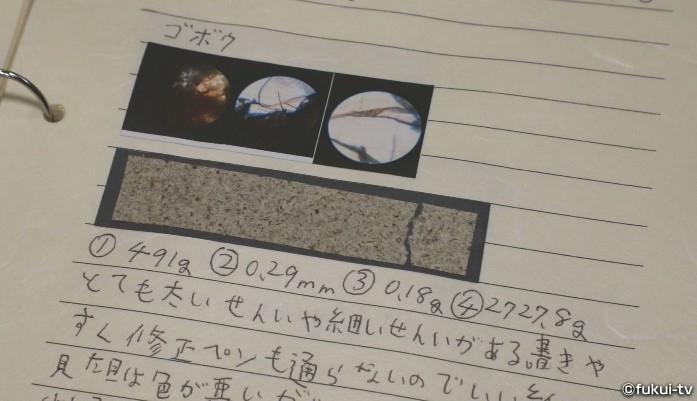 ゴボウ
① 491g ② 0.29mm ③ 0.18g ④ 2727.8g
とても太いせんいや細いせんいがある書きや
すく修正ペンも通らないのでいい
見た目は色が悪いが
©fukui-tv